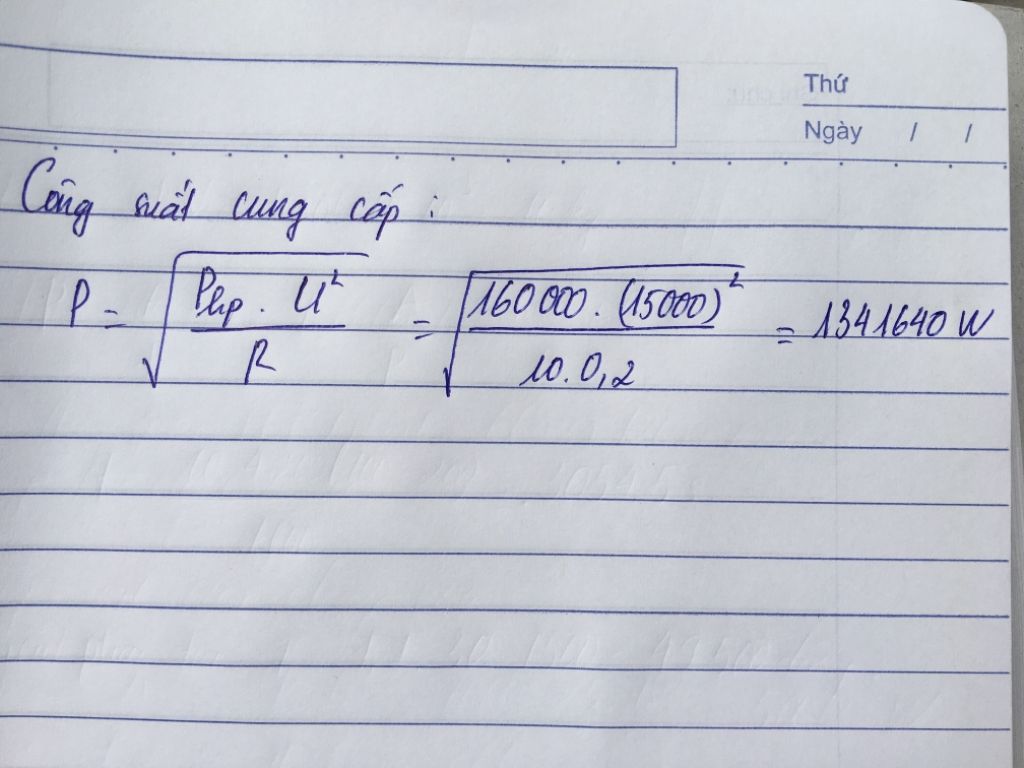 Thứ
Ngày / /
Công suất cung cấp :
P = √(Php . U² / R) = √(160000 . (15000)² / 10.0,2) = 1341640 W